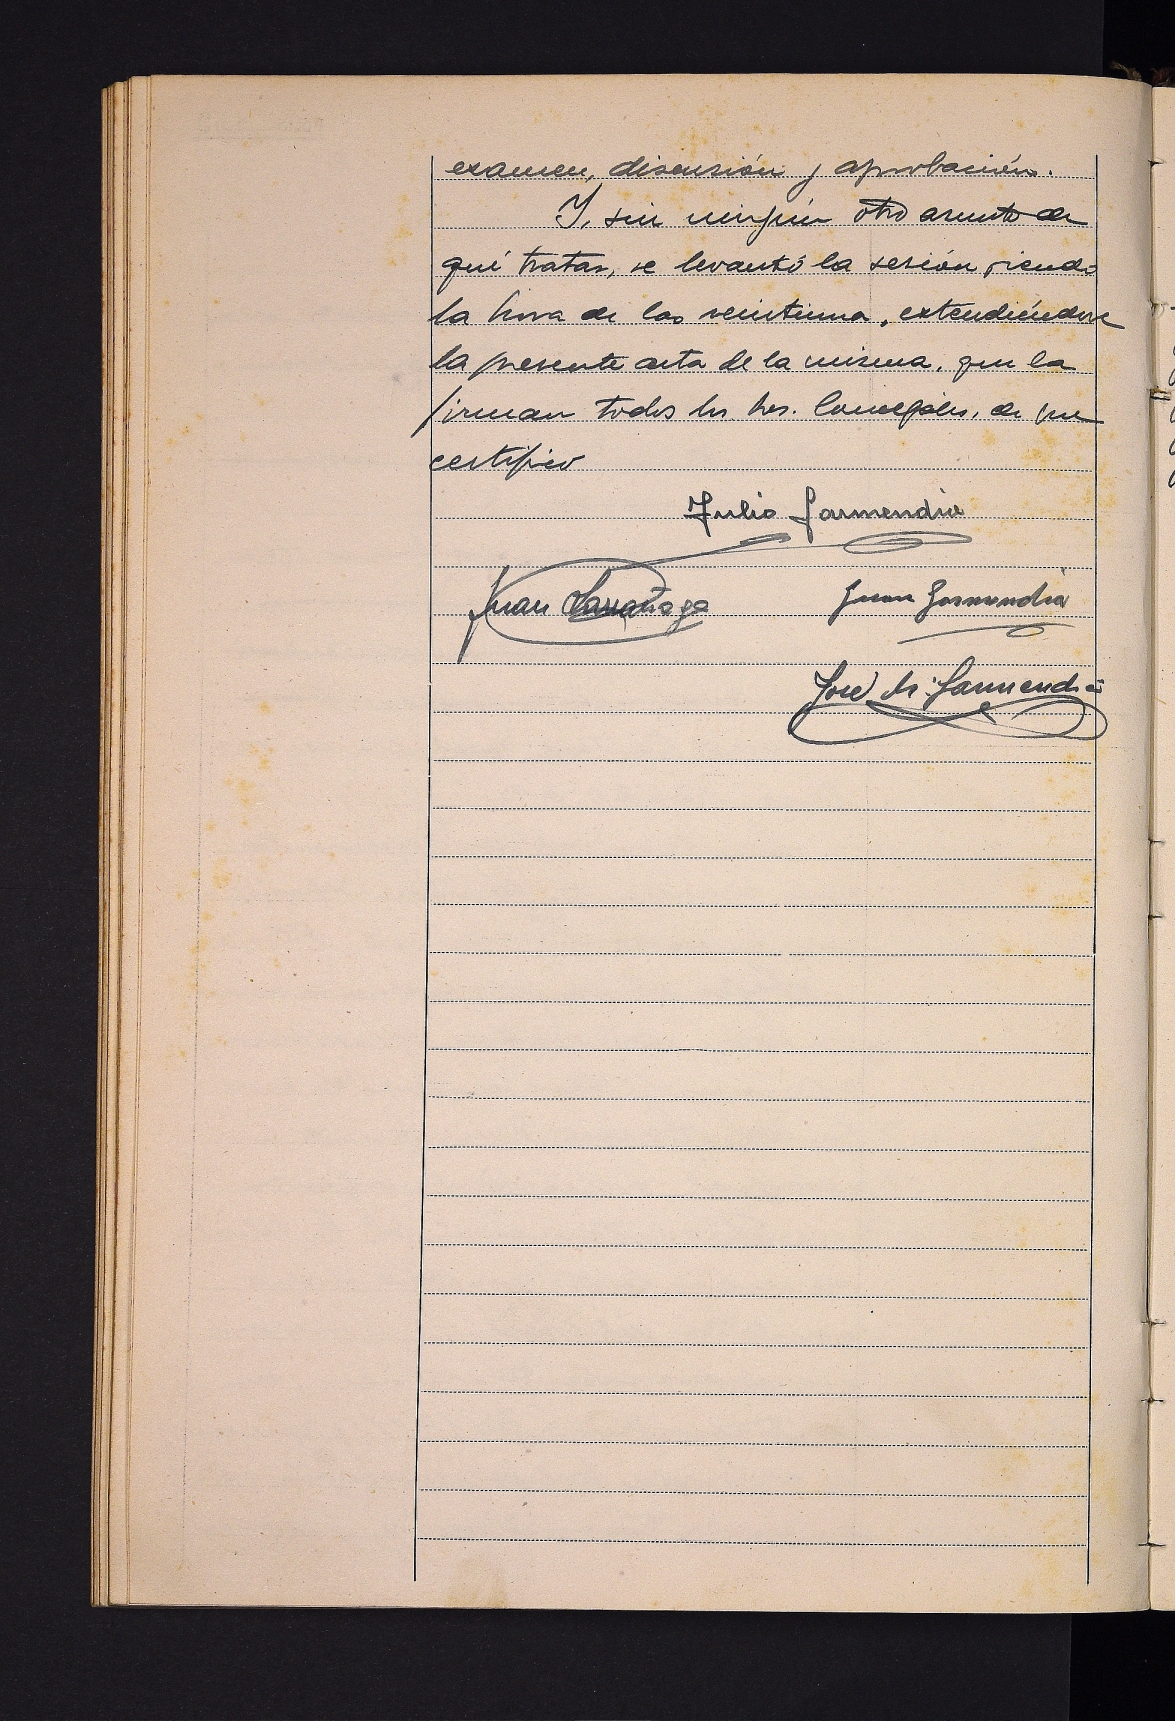 examen, discusión y aprobación.
Y, sin ningún otro asunto de
qué tratar, se levantó la sesión siendo
la hora de las veintiuna, extendiéndose
la presente acta de la misma, que la
firman todos los Sres. Concejales, de que
certifico
Julio Garmendia
Juan Larrañaga Juan Garmendia
José Mª Garmendia